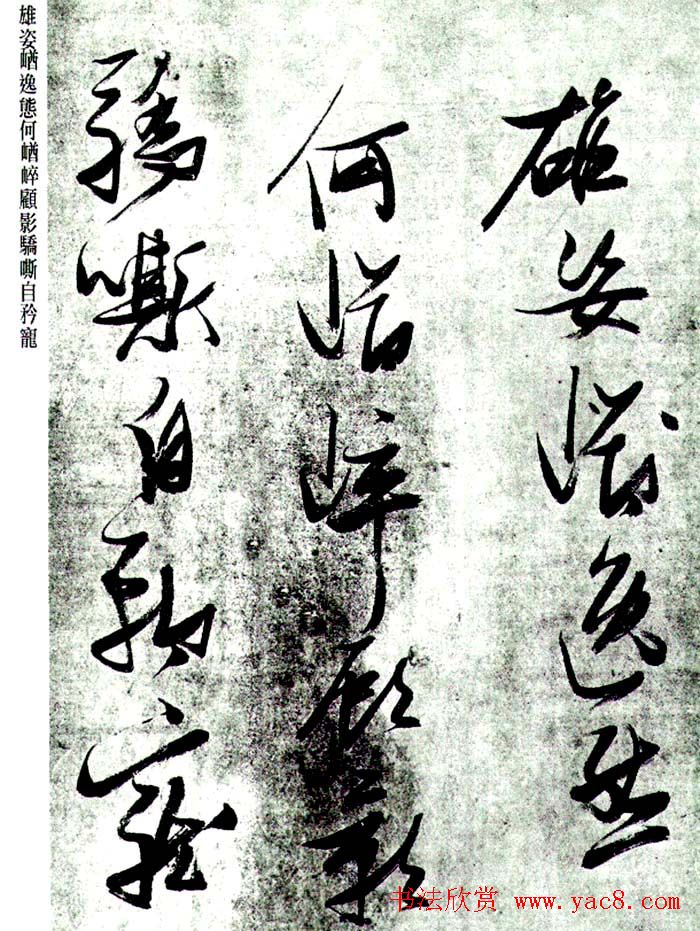 雄姿崷逸態
何崷崪顧影
驕嘶自矜寵
雄姿崷逸態何崷崪顧影驕嘶自矜寵
书法欣赏 www.yac8.com